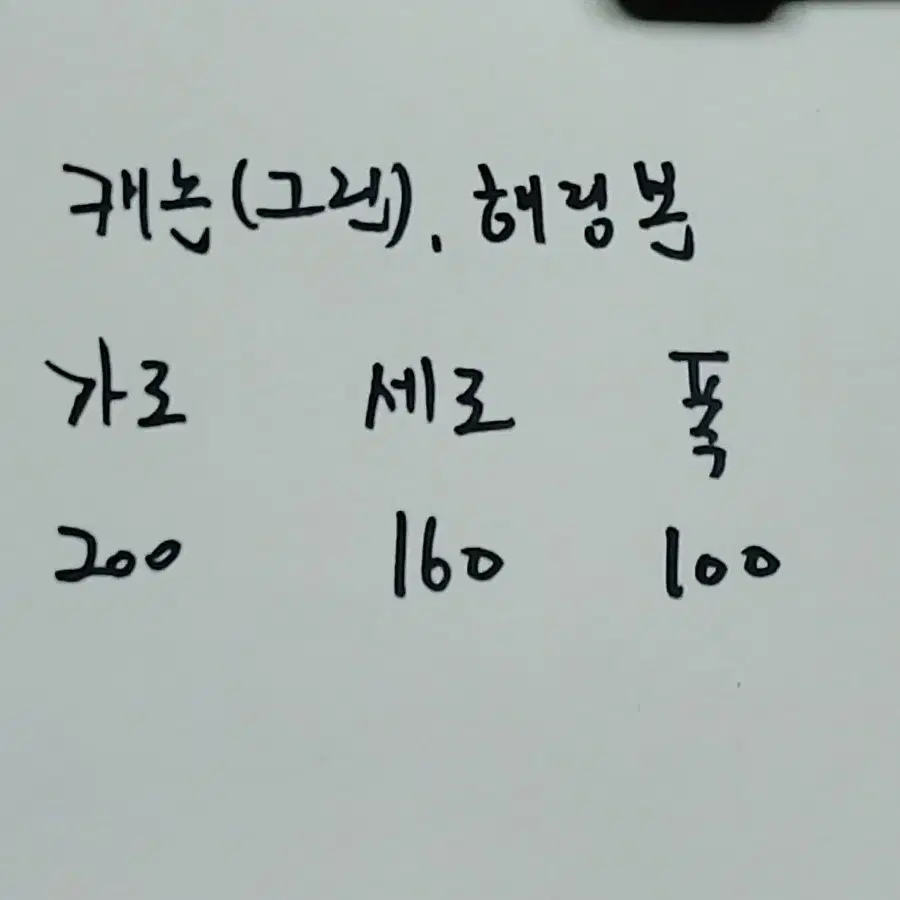 캐논(그렌). 해링본
가로 세로 폭
200 160 100